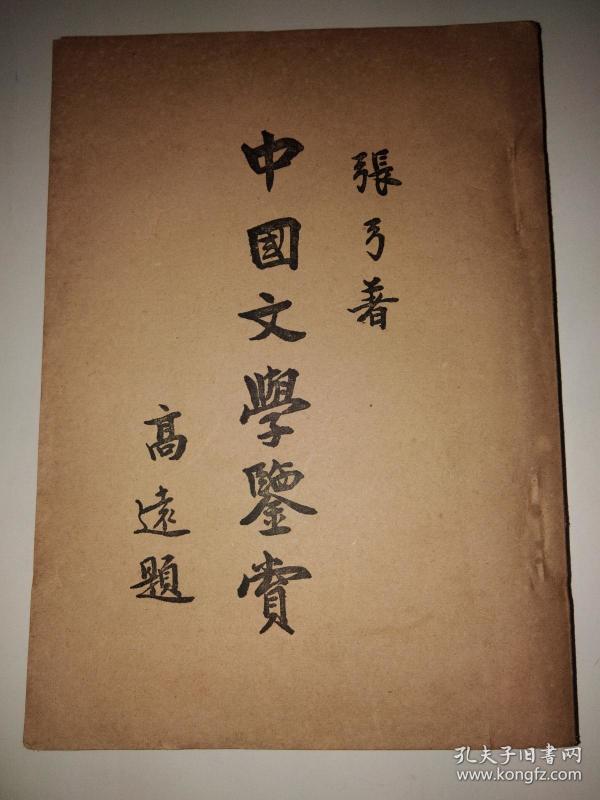 張弓著
中國文學鑒賞
高遠題
孔夫子旧書网
www.kongfz.com